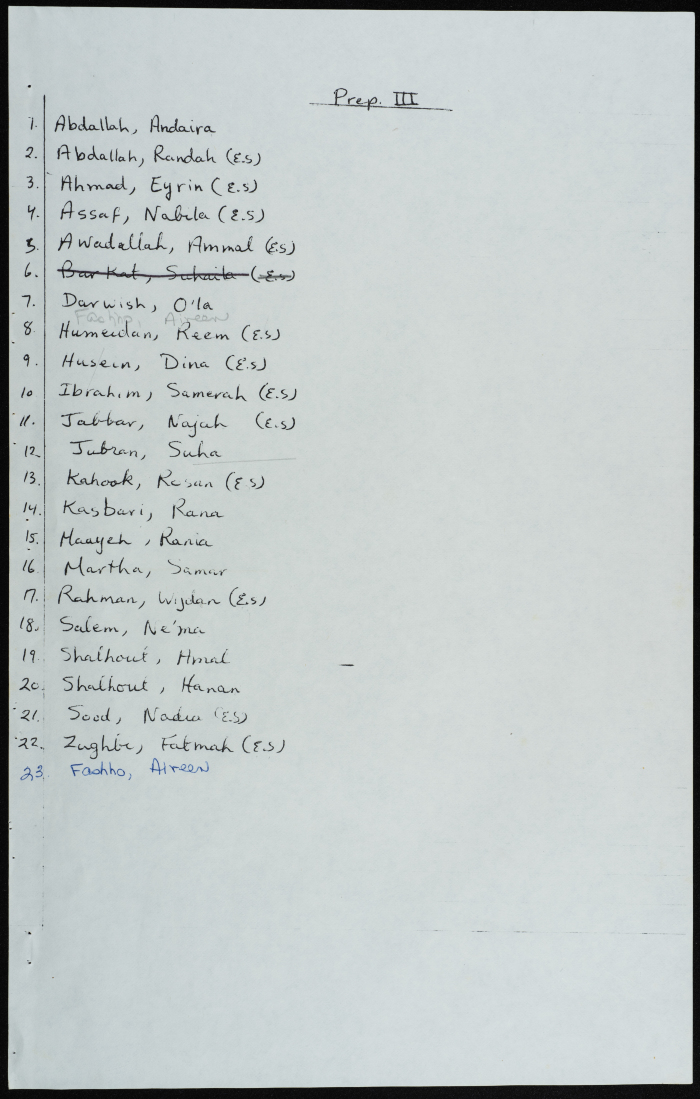 Prep. III
1. Abdallah, Andaira
2. Abdallah, Randah (E.S)
3. Ahmad, Eyrin (E.S)
4. Assaf, Nabila (E.S)
5. Awadallah, Ammal (E.S)
6. Barkat, Suhaila (E.S)
7. Darwish, O'la
Fashho, Aireen
8. Humeidan, Reem (E.S)
9. Husein, Dina (E.S)
10 Ibrahim, Samerah (E.S)
11. Jabbar, Najah (E.S)
12. Jubran, Suha
13. Kahook, Rasan (E.S)
14. Kasbari, Rana
15. Maayeh, Rania
16. Martha, Samar
17. Rahman, Wijdan (E.S)
18. Salem, Ne'ma
19. Shalhout, Amal
20. Shalhout, Hanan
21. Sood, Nadia (E.S)
22. Zughbi, Fatmah (E.S)
23. Fashho, Aireen